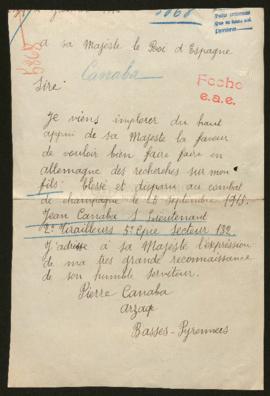 5868
5868
a sa Majeste le Roi d'Espagne
Canaba
Sire:
Fecho
e.a.e.
Je viens implorer du haut
appui de sa Majeste la faveur
de vouloir bien faire faire en
allemagne des recherches sur mon
fils: blessé et disparu au combat
de champagne le 25 septembre 1915.
Jean Canaba S/Lieutenant
2e Tirailleurs 5e Cpie secteur 132
J'adresse à sa Majeste l'expression
de ma tres grande reconnaissance
de son humble serviteur.
Pierre Canaba
Arzacq
Basses-Pyrennees